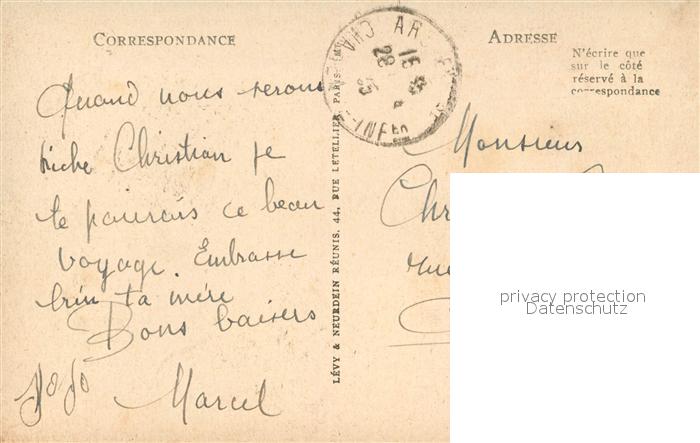 CORRESPONDANCE
Quand nous serons
riche Christian je
te paierais ce beau
voyage. Embrasse
bien ta mère
Bons baisers
Marcel
LÉVY & NEURDEIN RÉUNIS, 44, RUE LETELLIER, PARIS
ADRESSE
N'écrire que
sur le côté
réservé à la
correspondance
Monsieur
Chr
rue
privacy protection
Datenschutz